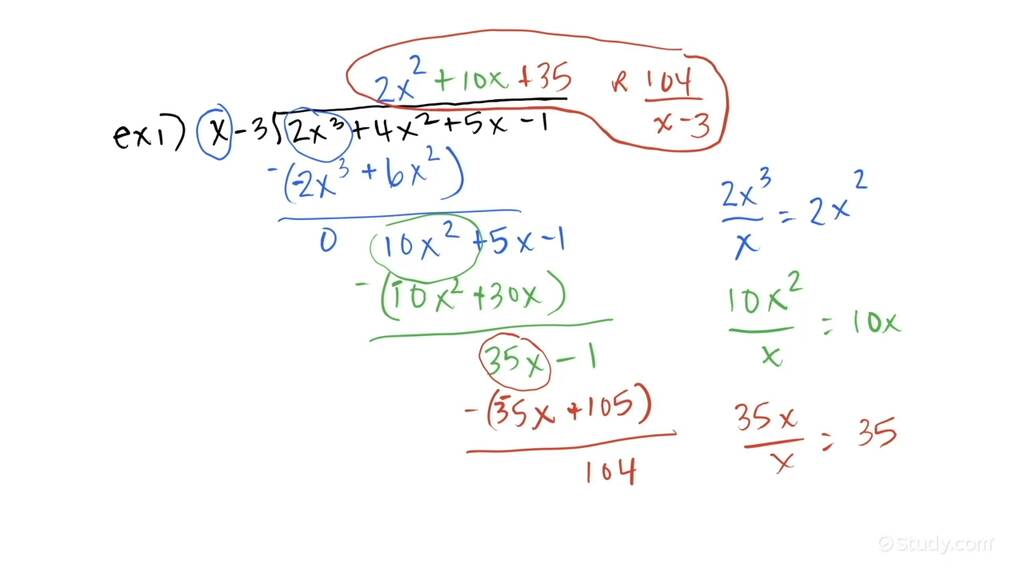 2x² + 10x + 35 R 104/(x - 3)
ex 1) x - 3 ) 2x³ + 4x² + 5x - 1
-(-2x³ + 6x²)
0 10x² + 5x - 1
-(-10x² + 30x)
35x - 1
-(-35x + 105)
104
2x³/x = 2x²
10x²/x = 10x
35x/x = 35
©Study.com